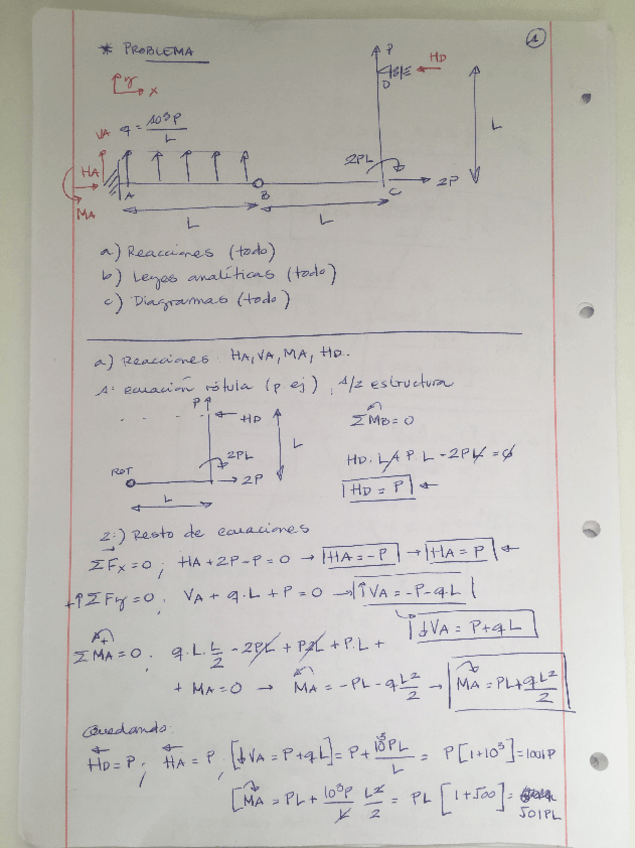 1
* PROBLEMA
P
HD
D
y
x
L
VA q = 10³P/L
HA
2PL
2P
A
B
C
MA
L
L
a) Reacciones (todo)
b) Leyes analíticas (todo)
c) Diagramas (todo)
a) Reacciones: HA, VA, MA, HD.
1: ecuación rótula (p ej), 1/2 estructura
P
HD
ΣMB = 0
L
2PL
HD · L + P · L - 2PL = 0
ROT
2P
L
HD = P ←
2:) Resto de ecuaciones
ΣFx = 0; HA + 2P - P = 0 → HA = -P → HA = P ←
+↑ΣFy = 0; VA + q · L + P = 0 → ↑VA = -P - q · L
↓VA = P + qL
ΣMA = 0; q · L · L/2 - 2PL + P2L + P · L +
+ MA = 0 → MA = -PL - qL²/2 → MA = PL + qL²/2
Quedando:
HD = P; HA = P; [↓VA = P + qL] = P + 10³PL/L = P[1 + 10³] = 1001P
[MA = PL + 10³P/L L²/2 = PL [1 + 500] =
501PL